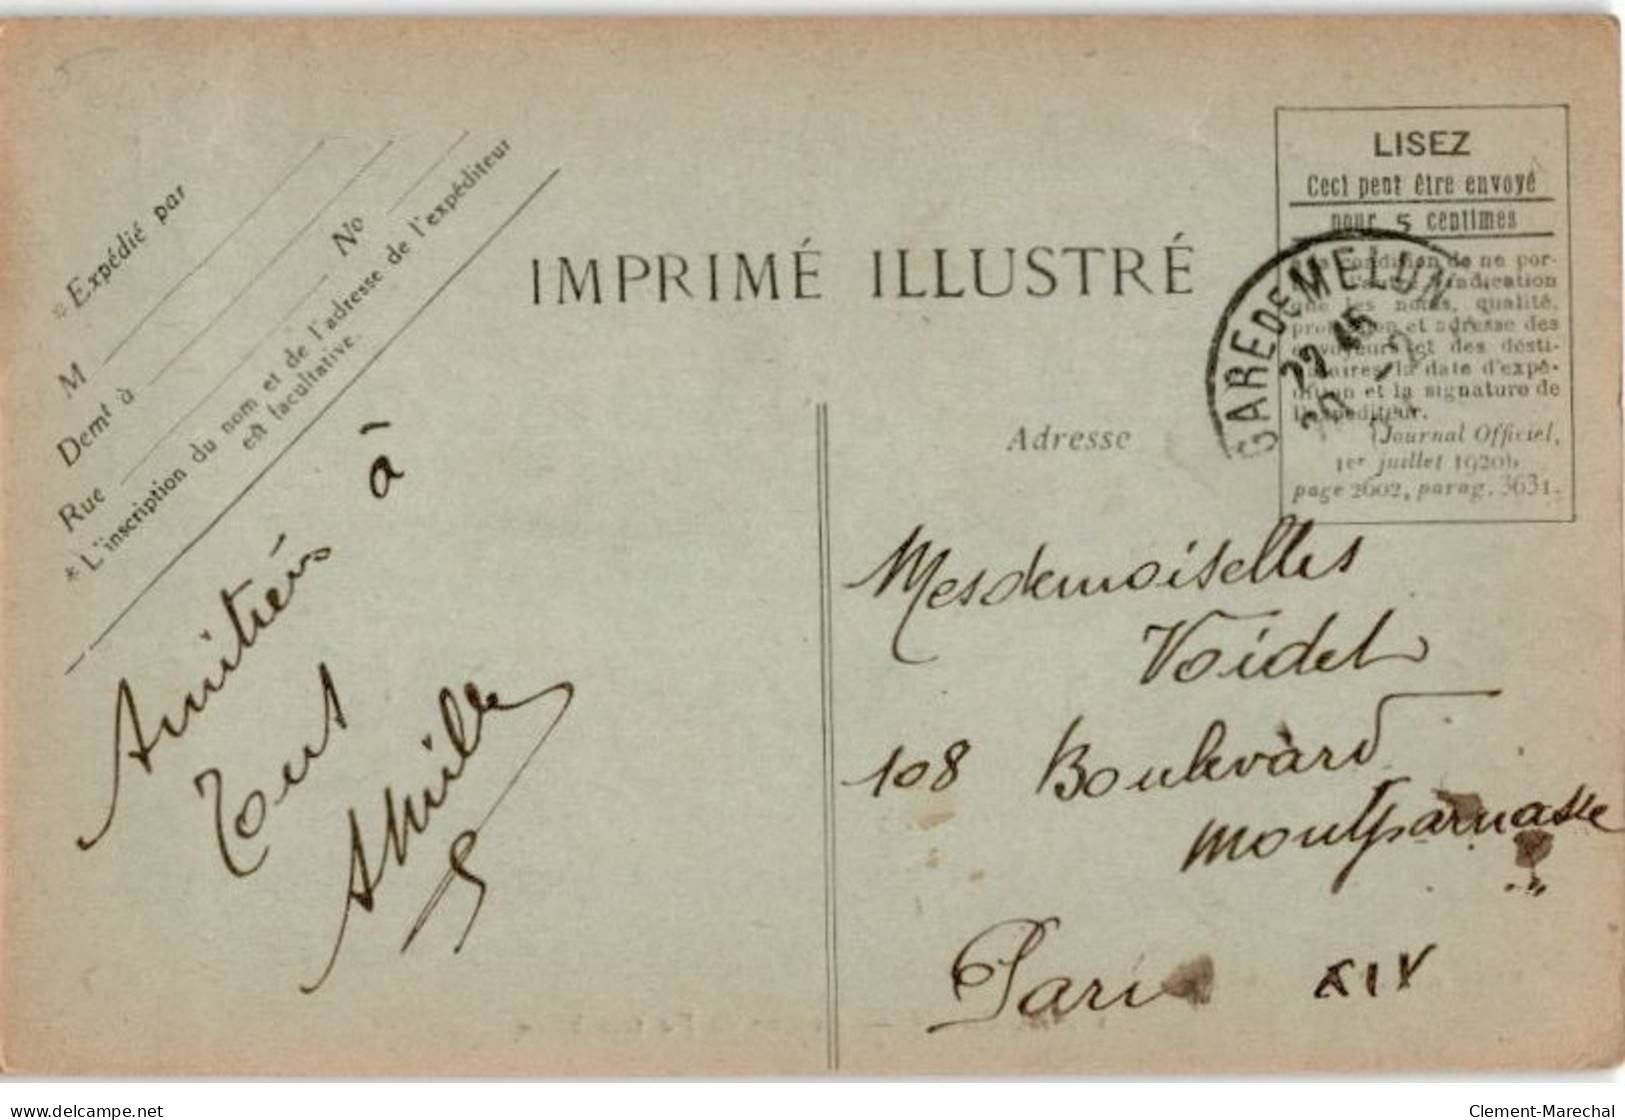 * Expédié par
M
Demt à
Rue
No
* L'inscription du nom et de l'adresse de l'expéditeur
est facultative.
IMPRIMÉ ILLUSTRÉ
LISEZ
Ceci peut être envoyé
pour 5 centimes
condition de ne por-
indication
que les noms, qualité,
profession et adresse des
envoyeurs et des desti-
nataires, la date d'expé-
dition et la signature de
l'expéditeur.
(Journal Officiel,
1er juillet 1920)
page 2602, parag. 3631.
GARE DE MELUN
22 45
Adresse
Amitiés à
Tous
Mesdemoiselles
Voidel
108 Boulevard
Montparnasse
Paris XIV
www.delcampe.net
Clement-Marechal